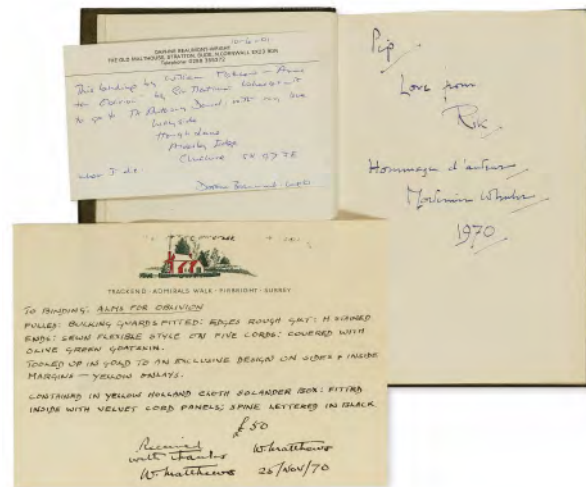 10-6-01
DAPHNE BEAUMONT-WRIGHT
THE OLD MALTHOUSE, STRATTON, BUDE, N.CORNWALL EX23 9BN
Telephone
This binding by William Matthews – Arms
for Oblivion – by Sir Mortimer Wheeler is
to go to Dr Anthony Beard, with my love
Wayside
Hough Lane
Alderley Edge
Cheshire
when I die.
Pip
Love from
Rik
Hommage d'auteur
Mortimer Wheeler
1970
TRACKEND · ADMIRALS WALK · PIRBRIGHT · SURREY
TO BINDING: ALMS FOR OBLIVION
PULLED: BULKING GUARDS FITTED: EDGES ROUGH GILT:
ENDS: SEWN FLEXIBLE STYLE ON FIVE CORDS: COVERED WITH
OLIVE GREEN GOATSKIN.
TOOLED UP IN GOLD TO AN EXCLUSIVE DESIGN ON SIDES & INSIDE
MARGINS – YELLOW ONLAYS.
CONTAINED IN YELLOW HOLLAND CLOTH SOLANDER BOX: FITTED
INSIDE WITH VELVET CORD PANELS; SPINE LETTERED IN BLACK
£50
Received
with thanks W. Matthews
W. Matthews 25/NOV/70